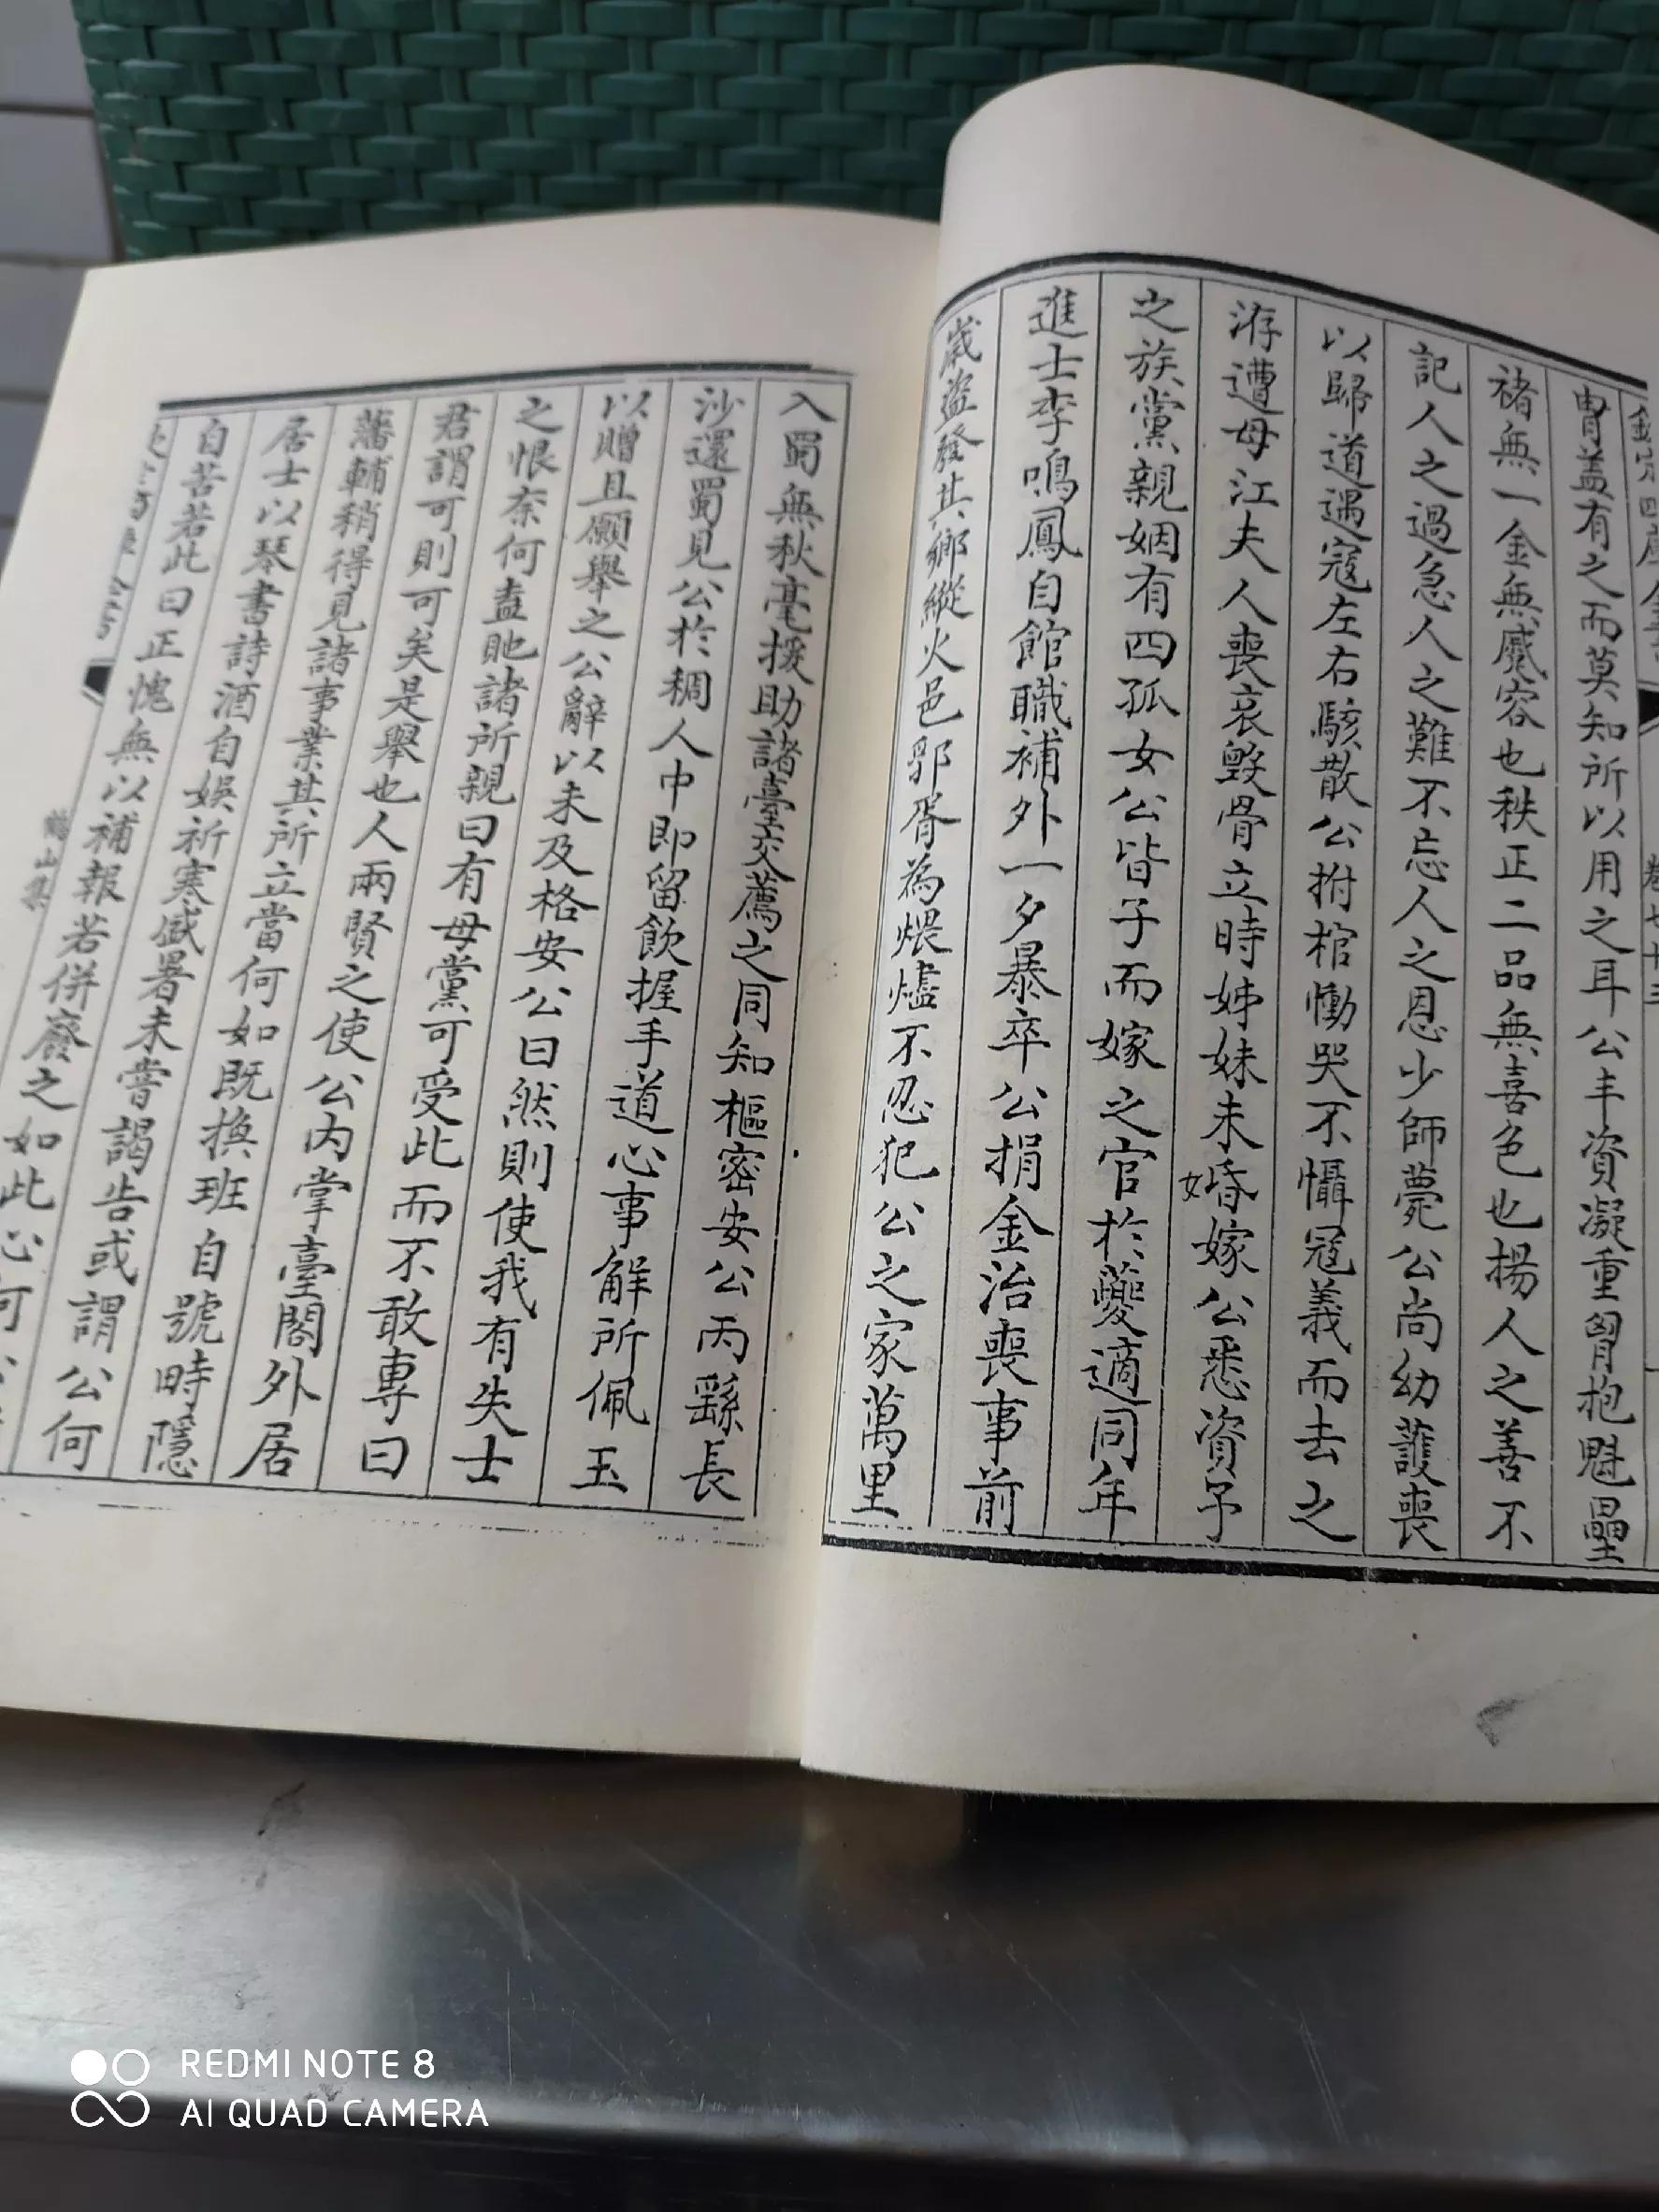 胄蓋有之而莫知所以用之耳公丰資凝重胷抱魁壘
褚無一金無慼容也秩正二品無喜色也揚人之善不
記人之過急人之難不忘人之恩少師薨公尚幼護喪
以歸道遇寇左右駭散公拊棺慟哭不懾寇義而去之
洊遭母江夫人喪哀毀骨立時姊妹未婚嫁公悉資予
之族黨親姻有四孤女公皆子而嫁之官於夔適同年
進士李鳴鳳自館職補外一夕暴卒公捐金治喪事前
歲盜發其鄉縱火邑郛胥為煨燼不忍犯公之家萬里
入蜀無秋毫援助諸臺交薦之同知樞密安公丙繇長
沙還蜀見公於稠人中即留飲握手道心事解所佩玉
以贈且願舉之公辭以未及格安公曰然則使我有失士
之恨奈何盍貤諸所親曰有母黨可受此而不敢專曰
君謂可則可矣是舉也人兩賢之使公內掌臺閣外居
藩輔稍得見諸事業其所立當何如既換班自號時隱
居士以琴書詩酒自娛祈寒盛暑未嘗謁告或謂公何
自苦若此曰正愧無以補報若併廢之如此心何
鶴山集
REDMI NOTE 8
AI QUAD CAMERA